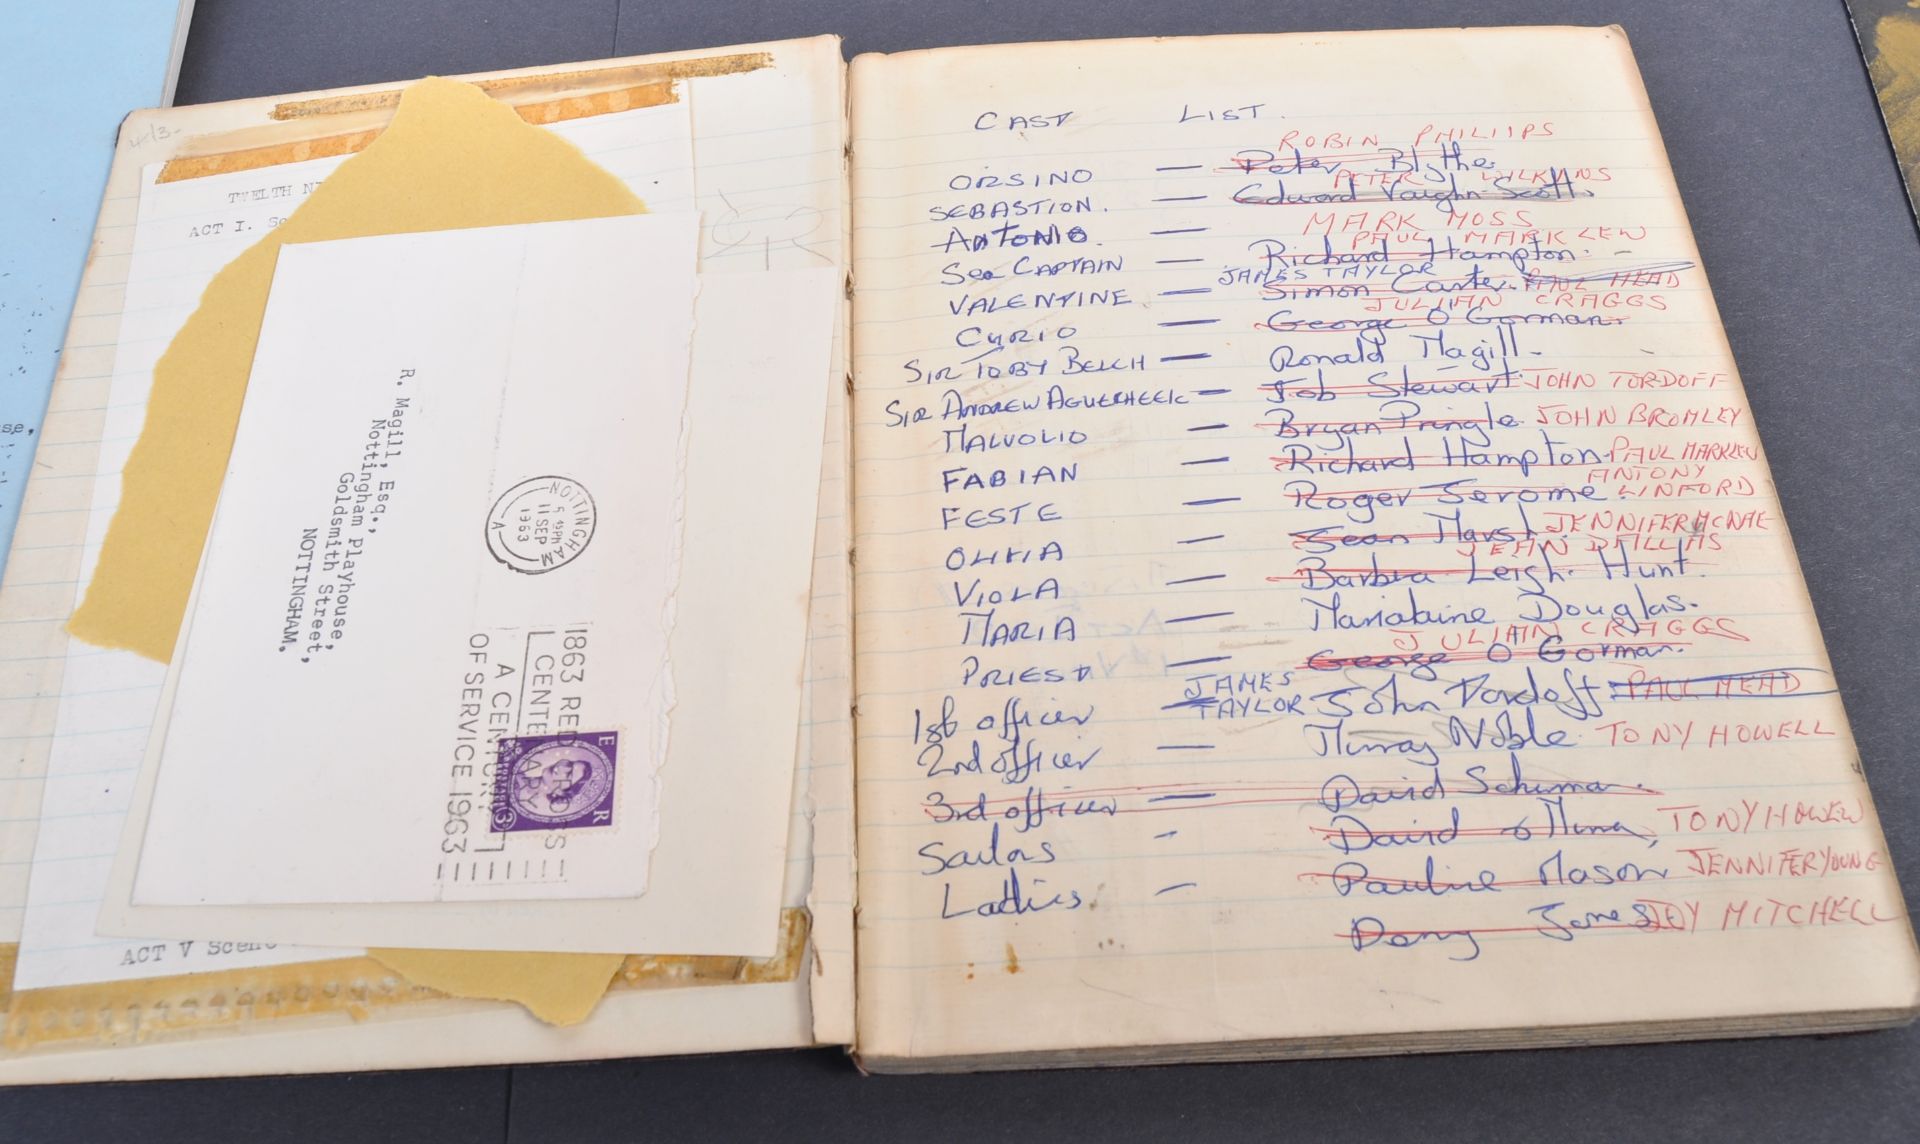 4/3-
TWELTH
ACT I.
R. Magill, Esq.,
Nottingham Playhouse,
Goldsmith Street,
NOTTINGHAM.
NOTTINGHAM
5 45PM
11 SEP
1963
A
1863 RED CROSS
CENTENARY
A CENTURY
OF SERVICE 1963
E R
3D
ACT V Scene
se,
CAST LIST.
ROBIN PHILIIPS
ORSINO — Peter Blythe.
PETER WILKINS
SEBASTION. — Edward Vaughn-Scott.
MARK MOSS
ANTONIO. —
PAUL MARKLEW
Sea CAPTAIN — Richard Hampton.
JAMES TAYLOR
VALENTINE — Simon Carter. PAUL HEAD
JULIAN CRAGGS
CYRIO — George O'Gorman.
SIR TOBY BELCH — Ronald Magill.
SIR ANDREW AGUECHEEK — Job Stewart. JOHN TORDOFF
MALVOLIO — Bryan Pringle. JOHN BROMLEY
FABIAN — Richard Hampton. PAUL MARKLEW
ANTONY
FESTE — Roger Jerome LINFORD
OLIVIA — Sean Marsh JENNIFER MCNAE
JEAN DALLAS
VIOLA — Barbra Leigh. Hunt.
MARIA — Douglas.
JULIAN CRAGGS
PRIEST — George O Gorman.
JAMES
1st officer — TAYLOR John Tordoff PAUL HEAD
2nd officer — Murray Noble. TONY HOWELL
3rd officer — David
Sailors - David TONY HOWELL
Ladies - Pauline Mason JENNIFER YOUNG
Jones JOY MITCHELL